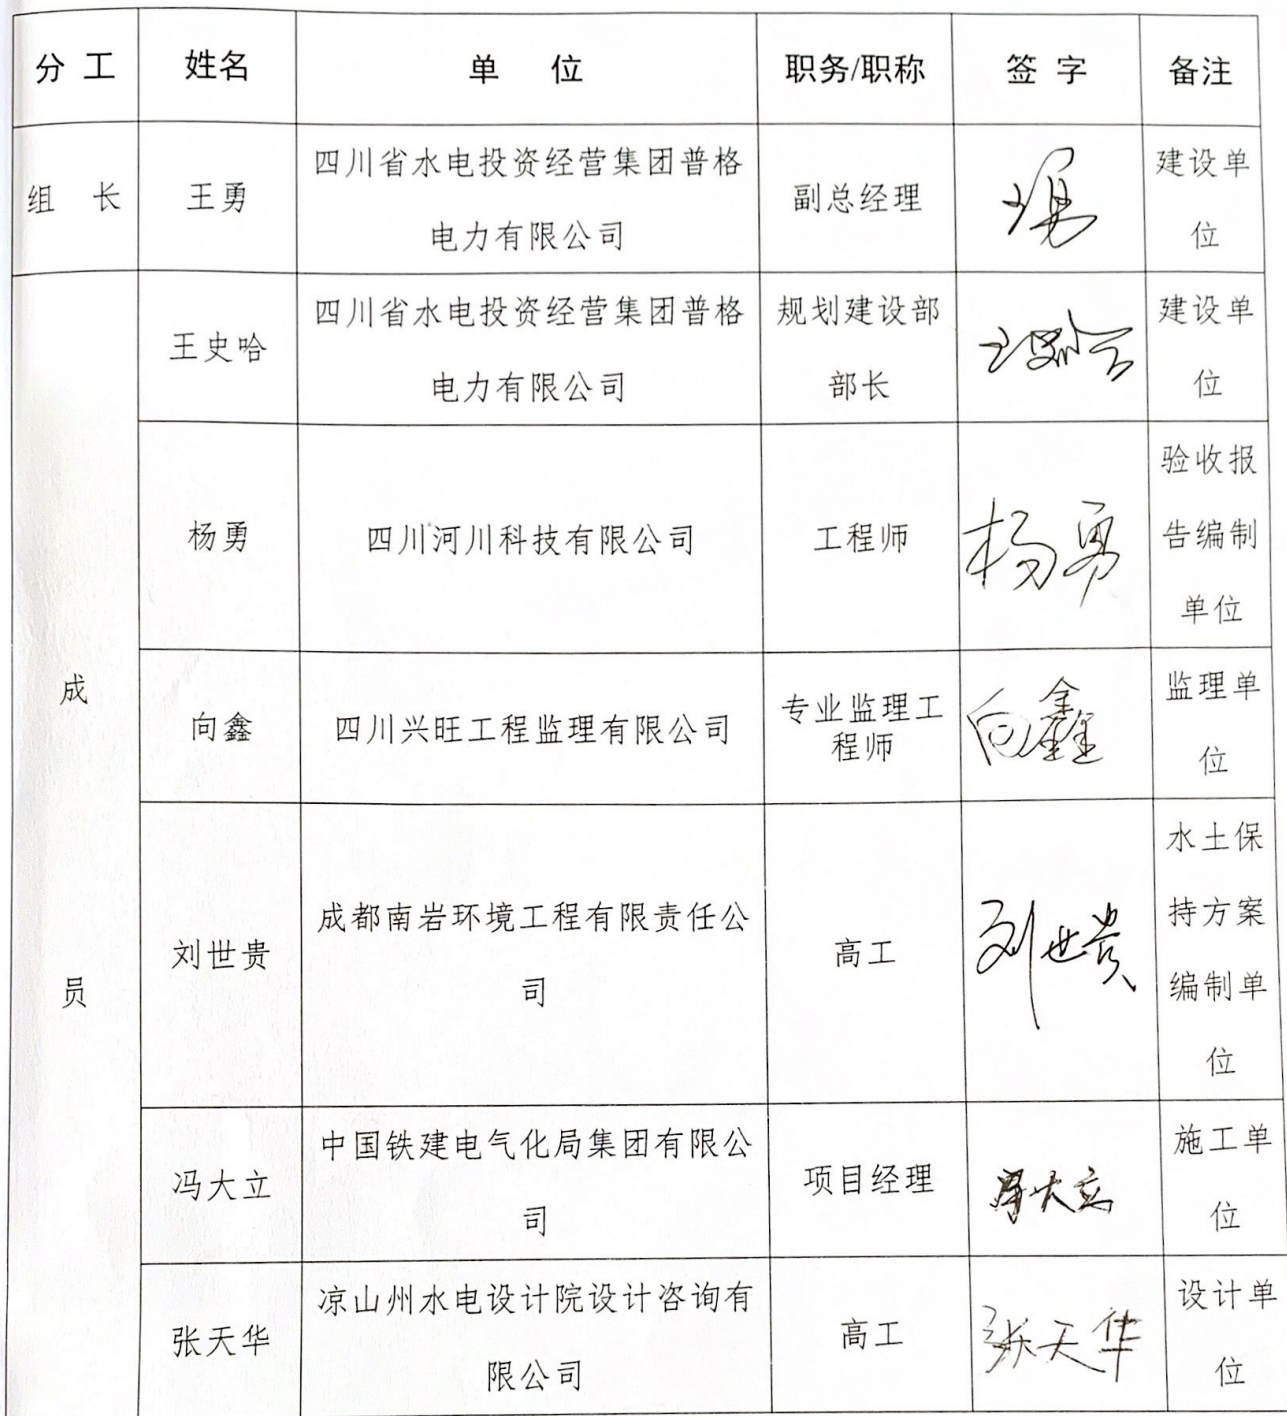 分 工 姓名 单 位 职务/职称 签 字 备注
组 长 王勇 四川省水电投资经营集团普格 电力有限公司 副总经理 王勇 建设单 位
成 员
王史哈 四川省水电投资经营集团普格 电力有限公司 规划建设部 部长 王史哈 建设单 位
杨勇 四川河川科技有限公司 工程师 杨勇 验收报 告编制 单位
向鑫 四川兴旺工程监理有限公司 专业监理工 程师 向鑫 监理单 位
刘世贵 成都南岩环境工程有限责任公 司 高工 刘世贵 水土保 持方案 编制单 位
冯大立 中国铁建电气化局集团有限公 司 项目经理 冯大立 施工单 位
张天华 凉山州水电设计院设计咨询有 限公司 高工 张天华 设计单 位